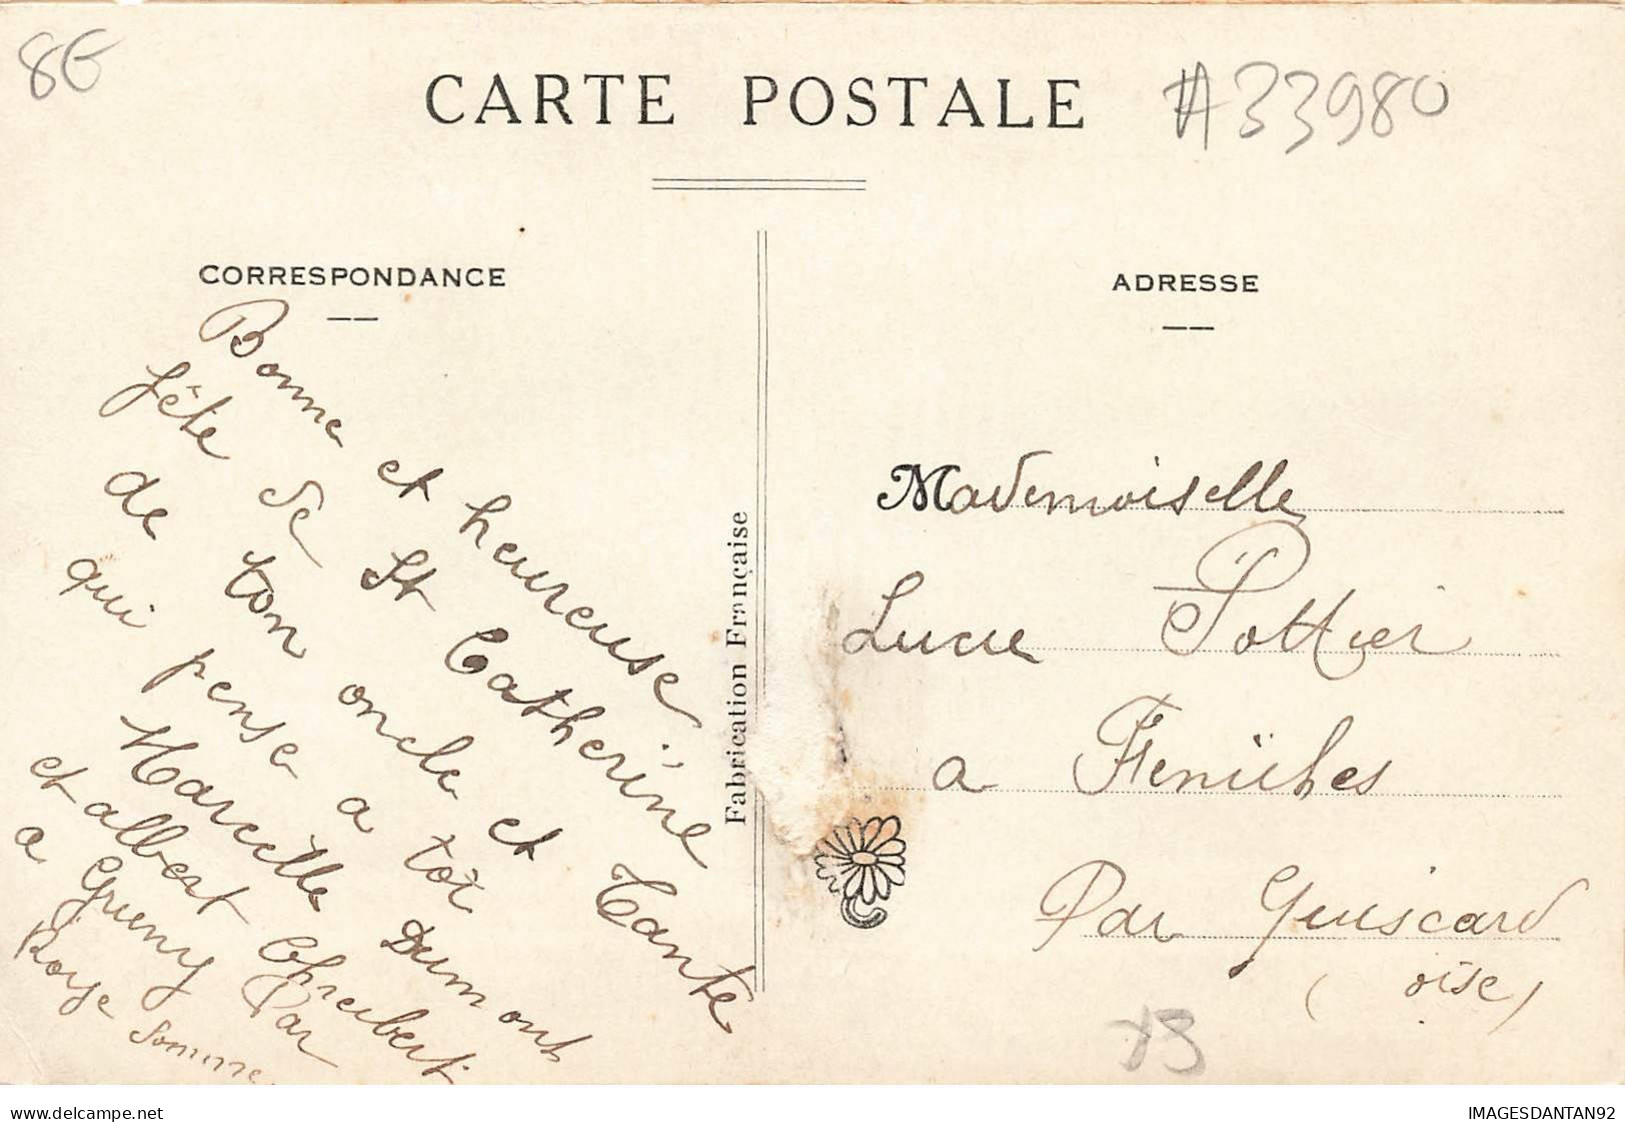 8€
CARTE POSTALE
#33980
CORRESPONDANCE
ADRESSE
Bonne et heureuse
fête de St Catherine
de ton oncle et Tante
qui pense a toi
Marcelle Dumont
et albert
a Grueny Par
Roye Somme
Fabrication Française
Mademoiselle
Lucie Pottier
a Freniches
Par Guiscard
(oise)
delcampe.net
IMAGESDANTAN92